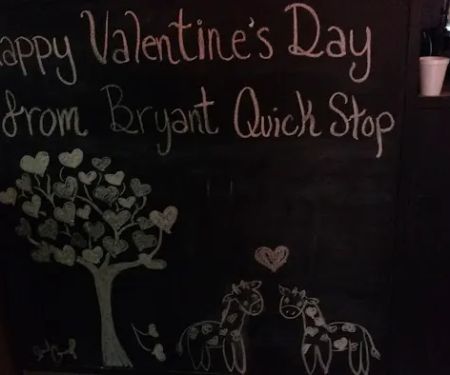 Happy Valentine's Day
from Bryant Quick Stop